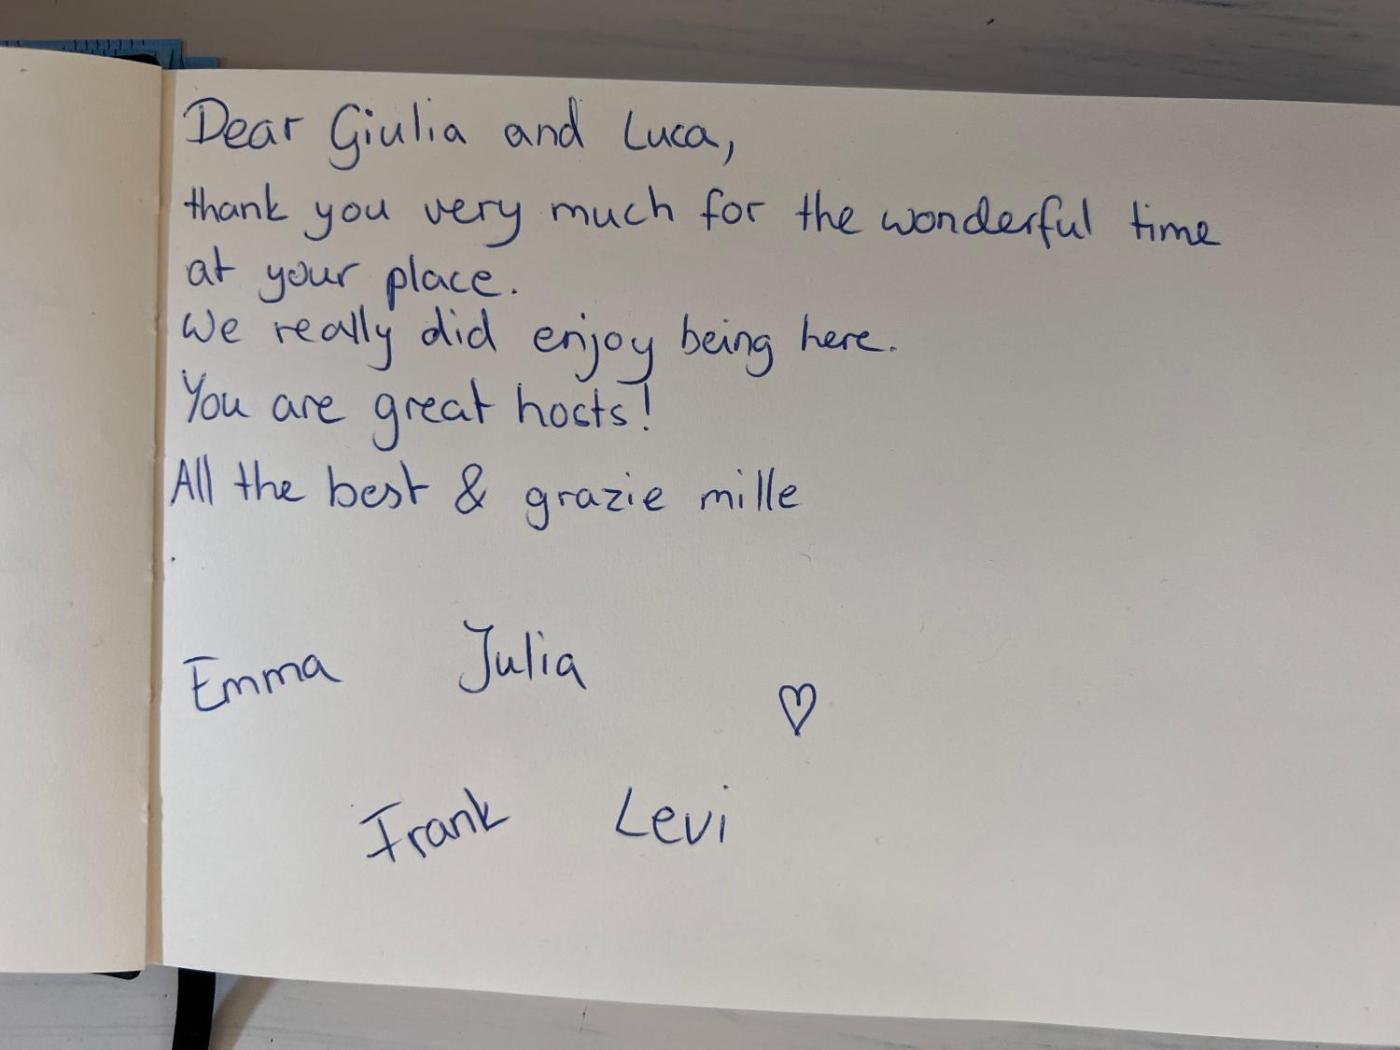 Dear Giulia and Luca,
thank you very much for the wonderful time
at your place.
We really did enjoy being here.
You are great hosts!
All the best & grazie mille
Emma Julia
♡
Frank Levi